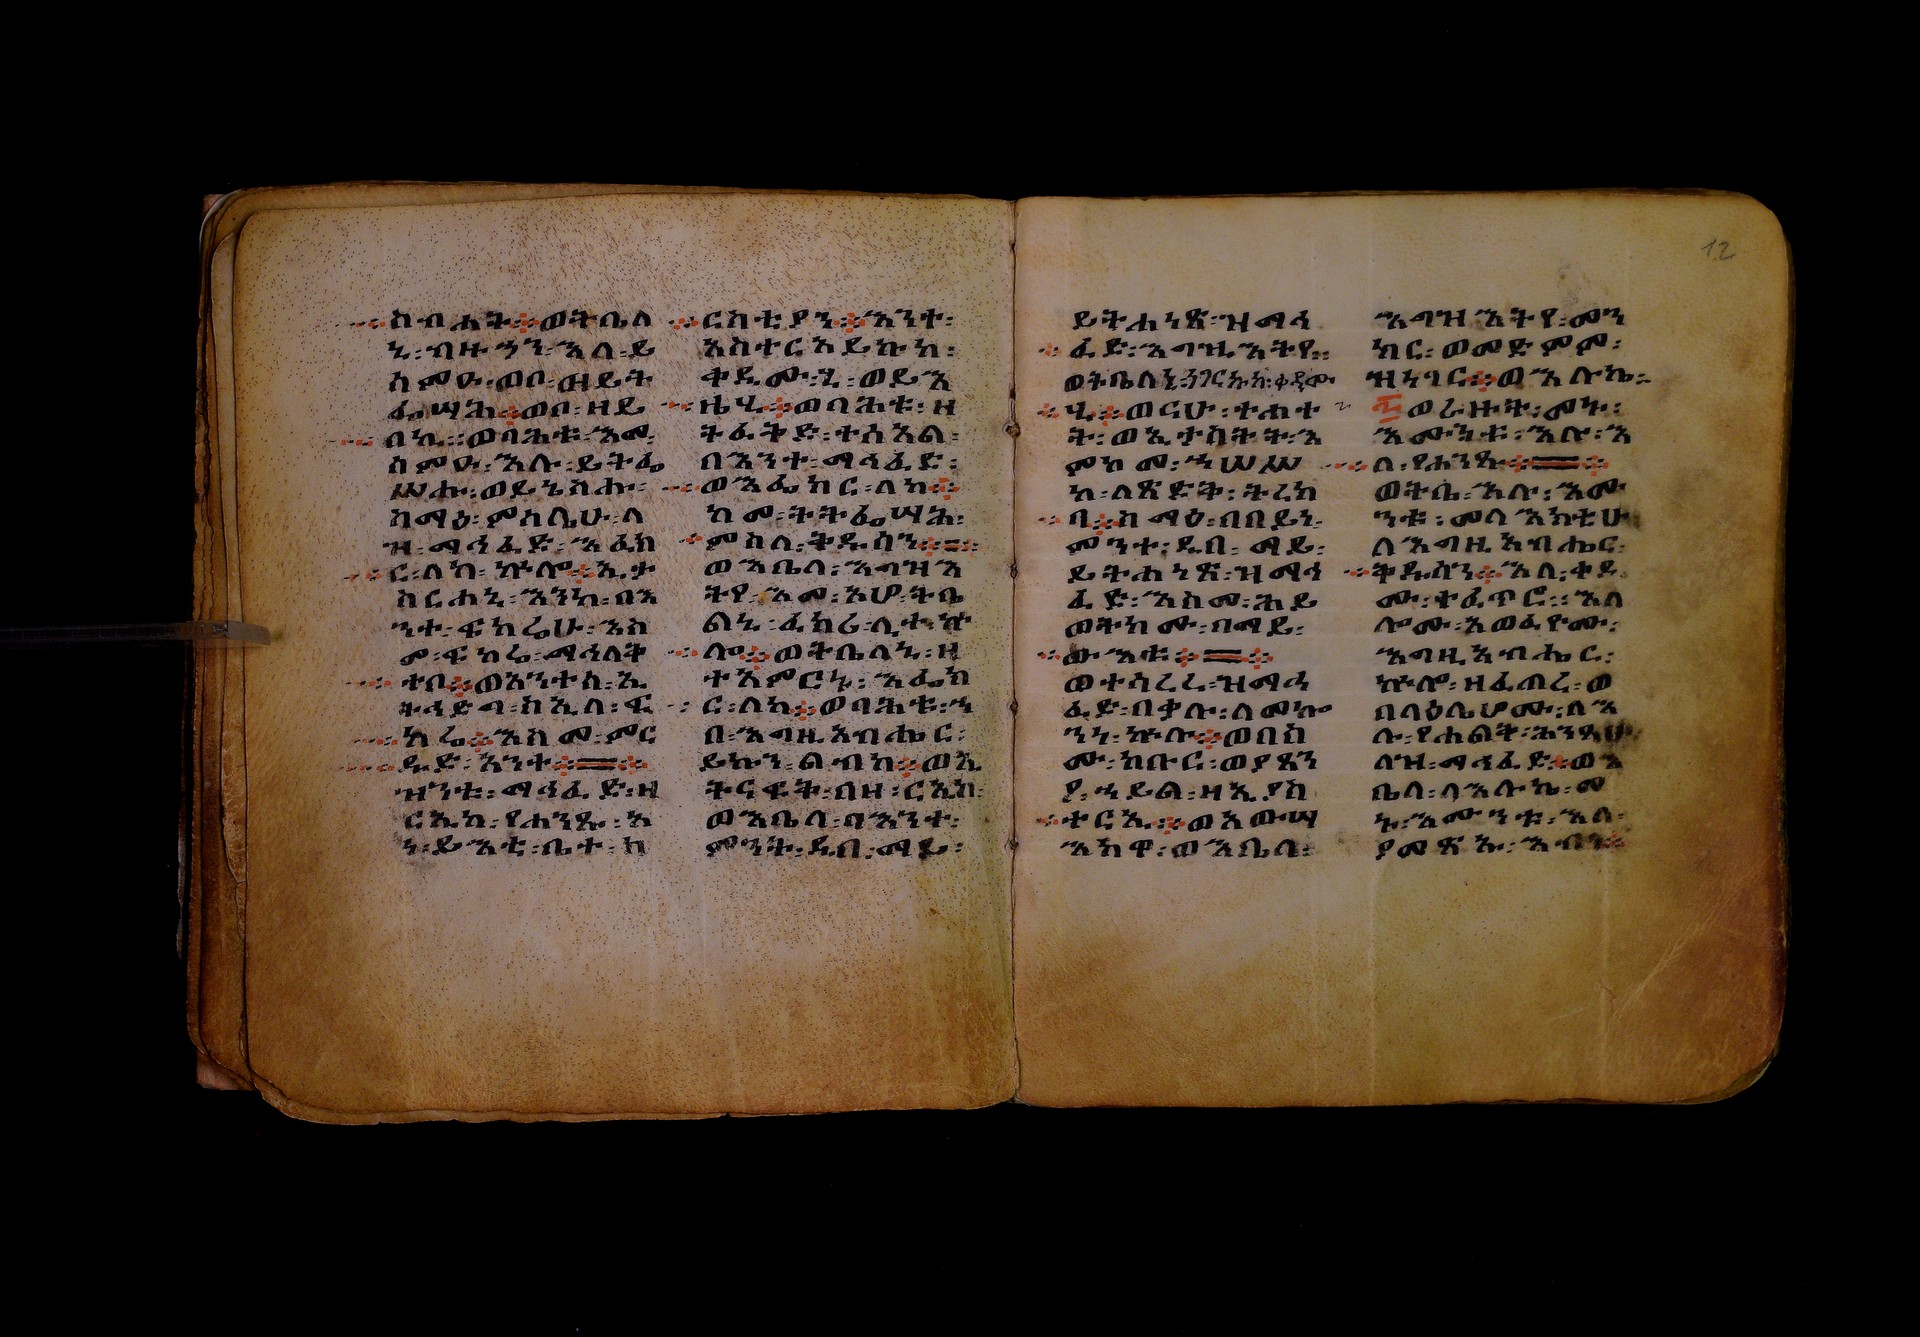 ስብሐት፨ወትቤለ
ኒ፡ብዙኅን፡እለ፡ይ
ሰምዑ፡ወቦ፡ዘይት
ፌሣሕ፨ወቦ፡ዘይ
በኪ፡፡ወባሕቱ፡እመ፡
ሰምዑ፡እሉ፡ይትፌ
ሥሑ፡ወይኔስሑ፡
ስማዕ፡ምስሌሁ፡ለ
ዝ፡ማኅፈድ፡እፈክ
ር፡ለከ፡ኵሎ፨ኢታ
ስርሐኒ፡እንከ፡በእ
ንተ፡ፍካሬሁ፡እስ
መ፡ፍካሬ፡ማኅለቅ
ተቦ፨ወአንተሰ፡ኢ
ትኅድግ፡ስኢለ፡ፍ
ካሬ፨እስመ፡ምር
ዱድ፡አንተ፨
ዝንቱ፡ማኅፈድ፡ዘ
ርኢከ፡የሐንጹ፡አ
ነ፡ይእቲ፡ቤተ፡ክ
ርስቲያን፨እንተ፡
አስተርአይኩከ፡
ቀዲሙ፡ኒ፡ወይእ
ዜኒ፨ወባሕቱ፡ዘ
ትፈቅድ፡ተስአል፡
በእንተ፡ማኅፈድ፡
ወእፌክር፡ለከ፨
ከመ፡ትትፌሣሕ፡
ምስለ፡ቅዱሳን፨
ወእቤላ፡እግዝእ
ትየ፡እመ፡አሆ፡ትቤ
ልኒ፡ፈክሪ፡ሊተ፡ኵ
ሎ፨ወትቤለኒ፡ዘ
ተአምርኒ፡እፌክ
ር፡ለከ፨ወባሕቱ፡ኀ
በ፡እግዚአብሔር፡
ይኩን፡ልብከ፨ወኢ
ትናፍቅ፡በዘ፡ርኢከ፡
ወእቤላ፡በእንተ፡
ምንት፡ዲበ፡ማይ፡
ይትሐነጽ፡ዝማኅ
ፈድ፡እግዚእትየ፡፡
ወትቤለኒ፡ነገርኩከ፡ቀዲሙ
ኒ፨ወርሁ፡ተሐተ
ት፡ወኢታስትት፡እ
ምከመ፡ኀሠሥ
ከ፡ለጽድቅ፡ትረክ
ባ፨ስማዕ፡በበይነ፡
ምንት፡ዲበ፡ማይ፡
ይትሐነጽ፡ዝማኅ
ፈድ፡እስመ፡ሕይ
ወትክሙ፡በማይ፡
ውእቱ፨
ወተሰረረ፡ዝማኅ
ፈድ፡በቃሉ፡ለመኰ
ንነ፡ኵሉ፨ወበስ
ሙ፡ክቡር፡ወያጸን
ዖ፡ኀይል፡ዘኢያስ
ተርኢ፨ወአውሣ
እክዋ፡ወእቤላ፡
እግዝእትየ፡መን
ክር፡ወመድምም፡
ዝነገር፨ወእሉኬ፡
፮ወራዙት፡መኑ፡
እሙንቱ፡እሉ፡እ
ለ፡የሐንጹ፨
ወትቤ፡እሉ፡እሙ
ንቱ፡መላእክቲሁ
ለእግዚአብሔር፡
ቅዱሳን፨እለ፡ቀዲ
ሙ፡ተፈጥሩ፡፡እለ
ሎሙ፡አወፈዮሙ፡
እግዚአብሔር፡
ኵሎ፡ዘፈጠረ፡ወ
በላዕሌሆሙ፡ለእ
ሉ፡የሐልቅ፡ሕንጻሁ
ለዝ፡ማኅፈድ፨ወእ
ቤላ፡ባእሉኬ፡መ
ኑ፡እሙንቱ፡እለ፡
ያመጽኡ፡እብን፨